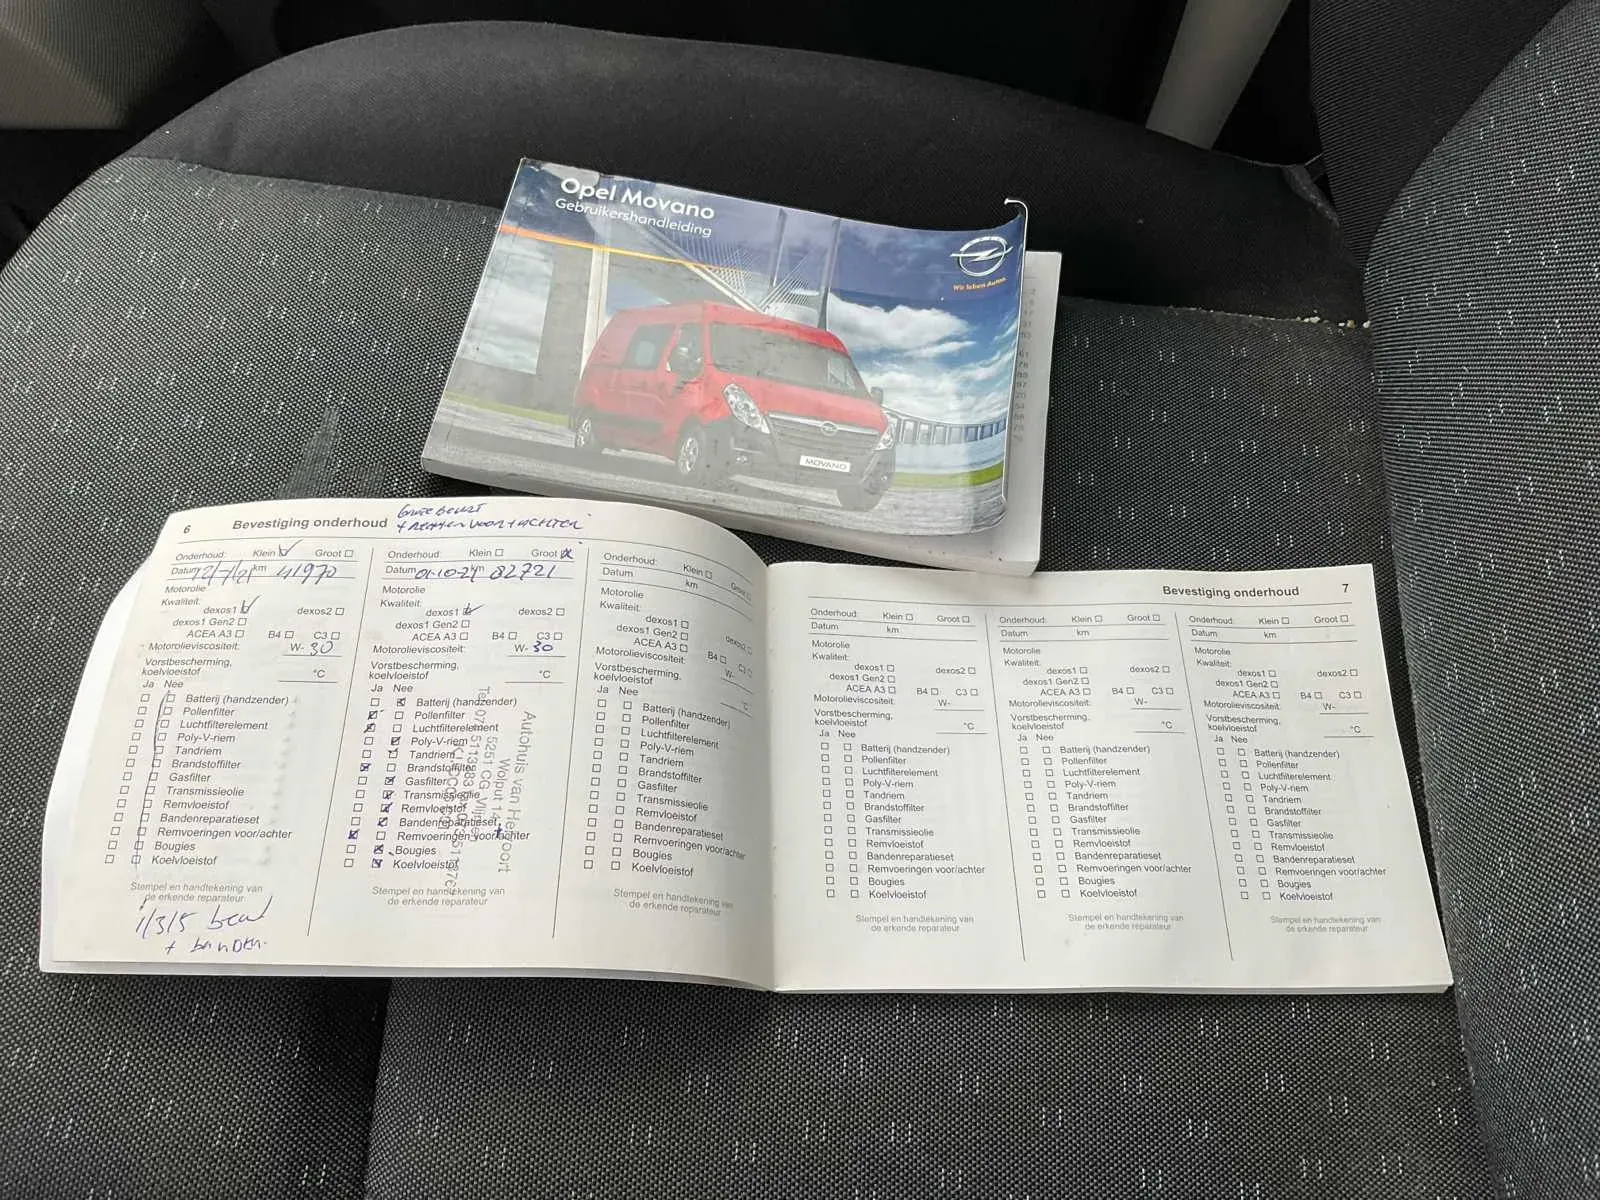 Opel Movano
Gebruikershandleiding
Wir leben Autos
MOVANO
6
Bevestiging onderhoud
Grote beurt
+ remmen voor + achter
Onderhoud: Klein Groot
Datum 12/7/21 km 41970
Motorolie
Kwaliteit:
dexos1 dexos2
dexos1 Gen2
ACEA A3 B4 C3
Motorolieviscositeit: W- 30
Vorstbescherming,
koelvloeistof °C
Ja Nee
Batterij (handzender)
Pollenfilter
Luchtfilterelement
Poly-V-riem
Tandriem
Brandstoffilter
Gasfilter
Transmissieolie
Remvloeistof
Bandenreparatieset
Remvoeringen voor/achter
Bougies
Koelvloeistof
Stempel en handtekening van
de erkende reparateur
+ banden
Onderhoud: Klein Groot
Datum 01-10-24 km 82721
Motorolie
Kwaliteit:
dexos1 dexos2
dexos1 Gen2
ACEA A3 B4 C3
Motorolieviscositeit: W- 30
Vorstbescherming,
koelvloeistof °C
Ja Nee
Batterij (handzender)
Pollenfilter
Luchtfilterelement
Poly-V-riem
Tandriem
Brandstoffilter
Gasfilter
Transmissieolie
Remvloeistof
Bandenreparatieset
Remvoeringen voor/achter
Bougies
Koelvloeistof
Stempel en handtekening van
de erkende reparateur
Autohuis van Helvoort
Wolput 14
5251 CG Vlijmen
Onderhoud: Klein Groot
Datum km
Motorolie
Kwaliteit:
dexos1 dexos2
dexos1 Gen2
ACEA A3 B4 C3
Motorolieviscositeit: W-
Vorstbescherming,
koelvloeistof °C
Ja Nee
Batterij (handzender)
Pollenfilter
Luchtfilterelement
Poly-V-riem
Tandriem
Brandstoffilter
Gasfilter
Transmissieolie
Remvloeistof
Bandenreparatieset
Remvoeringen voor/achter
Bougies
Koelvloeistof
Stempel en handtekening van
de erkende reparateur
Bevestiging onderhoud
7
Onderhoud: Klein Groot
Datum km
Motorolie
Kwaliteit:
dexos1 dexos2
dexos1 Gen2
ACEA A3 B4 C3
Motorolieviscositeit: W-
Vorstbescherming,
koelvloeistof °C
Ja Nee
Batterij (handzender)
Pollenfilter
Luchtfilterelement
Poly-V-riem
Tandriem
Brandstoffilter
Gasfilter
Transmissieolie
Remvloeistof
Bandenreparatieset
Remvoeringen voor/achter
Bougies
Koelvloeistof
Stempel en handtekening van
de erkende reparateur
Onderhoud: Klein Groot
Datum km
Motorolie
Kwaliteit:
dexos1 dexos2
dexos1 Gen2
ACEA A3 B4 C3
Motorolieviscositeit: W-
Vorstbescherming,
koelvloeistof °C
Ja Nee
Batterij (handzender)
Pollenfilter
Luchtfilterelement
Poly-V-riem
Tandriem
Brandstoffilter
Gasfilter
Transmissieolie
Remvloeistof
Bandenreparatieset
Remvoeringen voor/achter
Bougies
Koelvloeistof
Stempel en handtekening van
de erkende reparateur
Onderhoud: Klein Groot
Datum km
Motorolie
Kwaliteit:
dexos1 dexos2
dexos1 Gen2
ACEA A3 B4 C3
Motorolieviscositeit: W-
Vorstbescherming,
koelvloeistof °C
Ja Nee
Batterij (handzender)
Pollenfilter
Luchtfilterelement
Poly-V-riem
Tandriem
Brandstoffilter
Gasfilter
Transmissieolie
Remvloeistof
Bandenreparatieset
Remvoeringen voor/achter
Bougies
Koelvloeistof
Stempel en handtekening van
de erkende reparateur